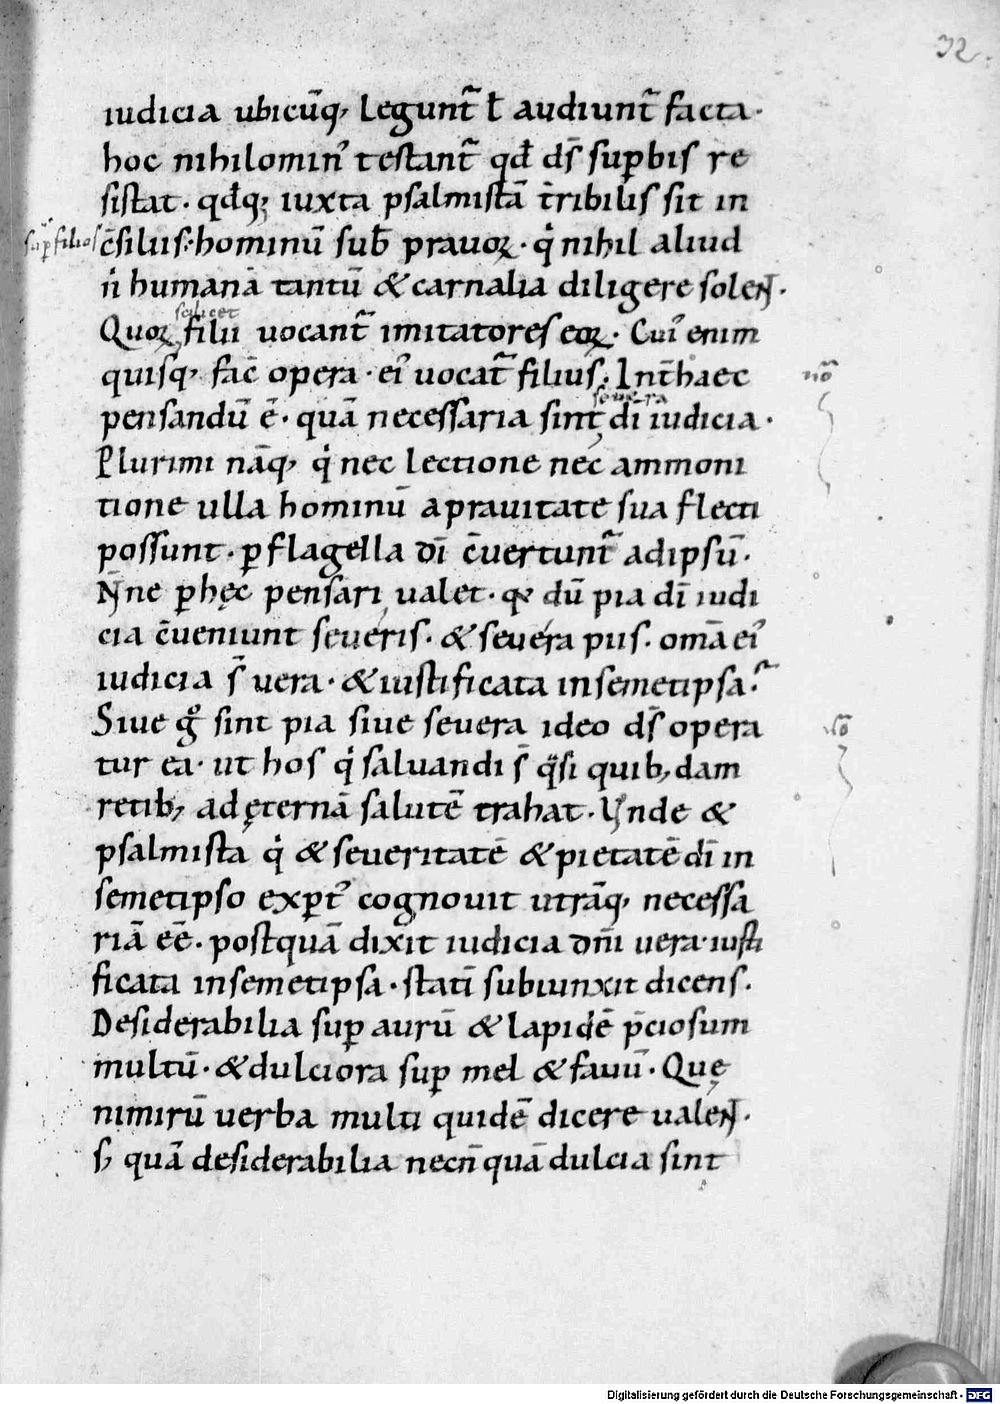 32.
iudicia ubicūq, Legunt᷑ ł audiunt᷑ facta·
hoc nihilomin᷒ testant᷑ qđ ds̄ suꝑbis re
sistat· qđq; iuxta psalmistā t̄ribilis sit in
sup filios c̄siliis· hominū sub̄ prauoꝝ· qͥ nihil aliud
nͥ humana tantū & carnalia diligere solen̄t·
scilicet
Quoꝝ filii uocant᷑ imitatores eoꝝ· Cui᷒ enim
quisq, fac̄ opera· ei᷒ uocat᷑ filius. Int̄ haec nō
seuera
pensandū ē· quā necessaria sint di iudicia·
Plurimi nāq, qͥ nec lectione nec ammoni
tione ulla hominū a prauitate sua flecti
possunt· ꝑ flagella dī c̄uertunt᷑ ad ipsū·
N̄ne ꝑ hęc pensari ualet· qđ dū pia dī iudi
cia c̄ueniunt seueris· & seuera piis· omā ei᷒
iudicia s̄ uera· & iustificata in semetipsa·
Siue gͦ sint pia siue seuera ideo ds̄ opera nō
tur ea· ut hos qͥ saluandi s̄ qͣsi quib, dam
retib, ad ęternā salutē trahat· Vnde &
psalmista qͥ & seueritatē & pietatē dī in
semetipso exꝑt᷒ cognouit utrāq, necessa
riā eē· postquā dixit iudicia dn̄i uera· iusti
ficata in semetipsa· statī subiunxit dicens·
Desiderabilia suꝑ aurū & lapidē p̄ciosum
multū· & dulciora suꝑ mel & fauū· Quę
nimirū uerba multi quidē dicere ualen̄t·
s, quā desiderabilia necn̄ quā dulcia sint
Digitalisierung gefördert durch die Deutsche Forschungsgemeinschaft - DFG